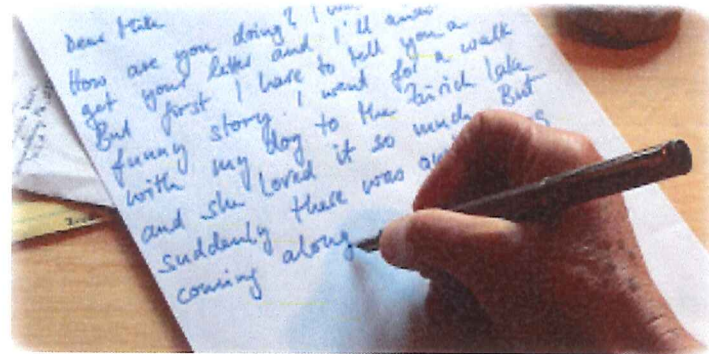 Dear Mile
How are you doing? I
get your letter and I'll
But first I have to tell you a
funny story. I went for a walk
with my dog to the Zürich Lake
and she loved it so much. But
suddenly there was
coming along